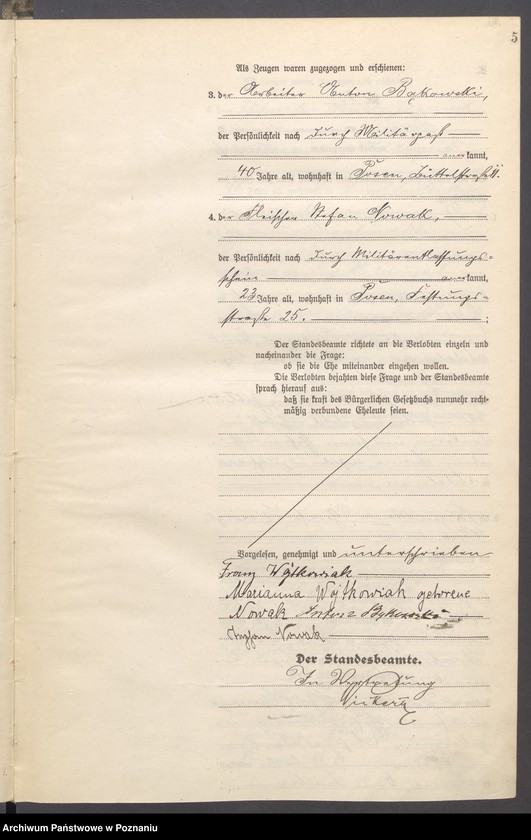 5
Als Zeugen waren zugezogen und erschienen:
3. der Arbeiter Anton Bąkowski,
der Persönlichkeit nach durch Militärpaß
anerkannt,
40 Jahre alt, wohnhaft in Posen, Büttelstraße 11.
4. der Fleischer Stefan Nowak,
der Persönlichkeit nach durch Militärentlassungs-
schein anerkannt,
23 Jahre alt, wohnhaft in Posen, Festungs-
straße 25. ;
Der Standesbeamte richtete an die Verlobten einzeln und
nacheinander die Frage:
ob sie die Ehe miteinander eingehen wollen.
Die Verlobten bejahten diese Frage und der Standesbeamte
sprach hierauf aus:
daß sie kraft des Bürgerlichen Gesetzbuchs nunmehr recht-
mäßig verbundene Eheleute seien.
Vorgelesen, genehmigt und unterschrieben
Franz Wojtkowiak
Marianna Wojtkowiak geborene
Nowak Anton Bąkowski
Nowak
Der Standesbeamte.
In Vertretung
Archiwum Państwowe w Poznaniu